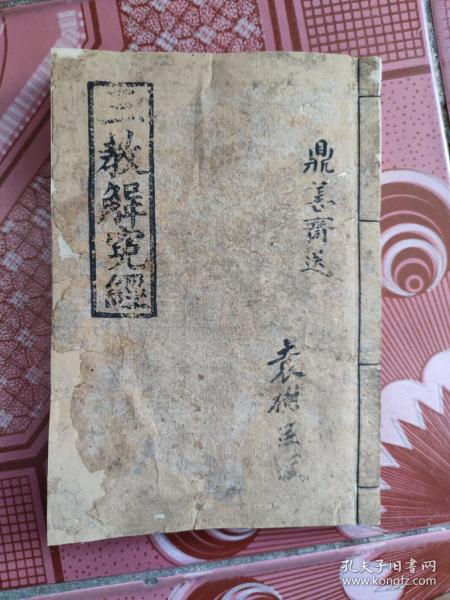 三教解冤經
鼎善齋送
袁樹
孔夫子旧书网
www.kongfz.com